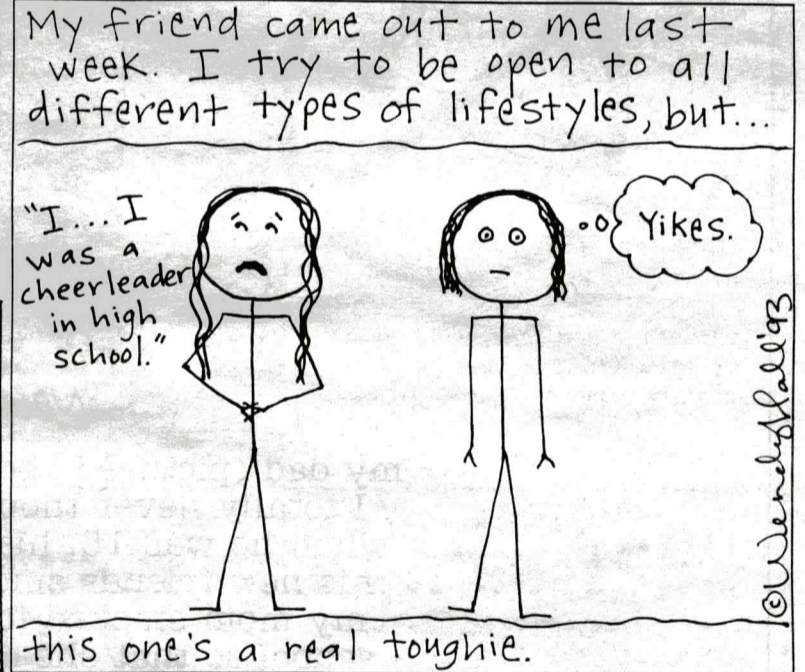 My friend came out to me last
week. I try to be open to all
different types of lifestyles, but...
"I...I
was a
cheerleader
in high
school."
Yikes.
©WendyHall'93
this one's a real toughie.